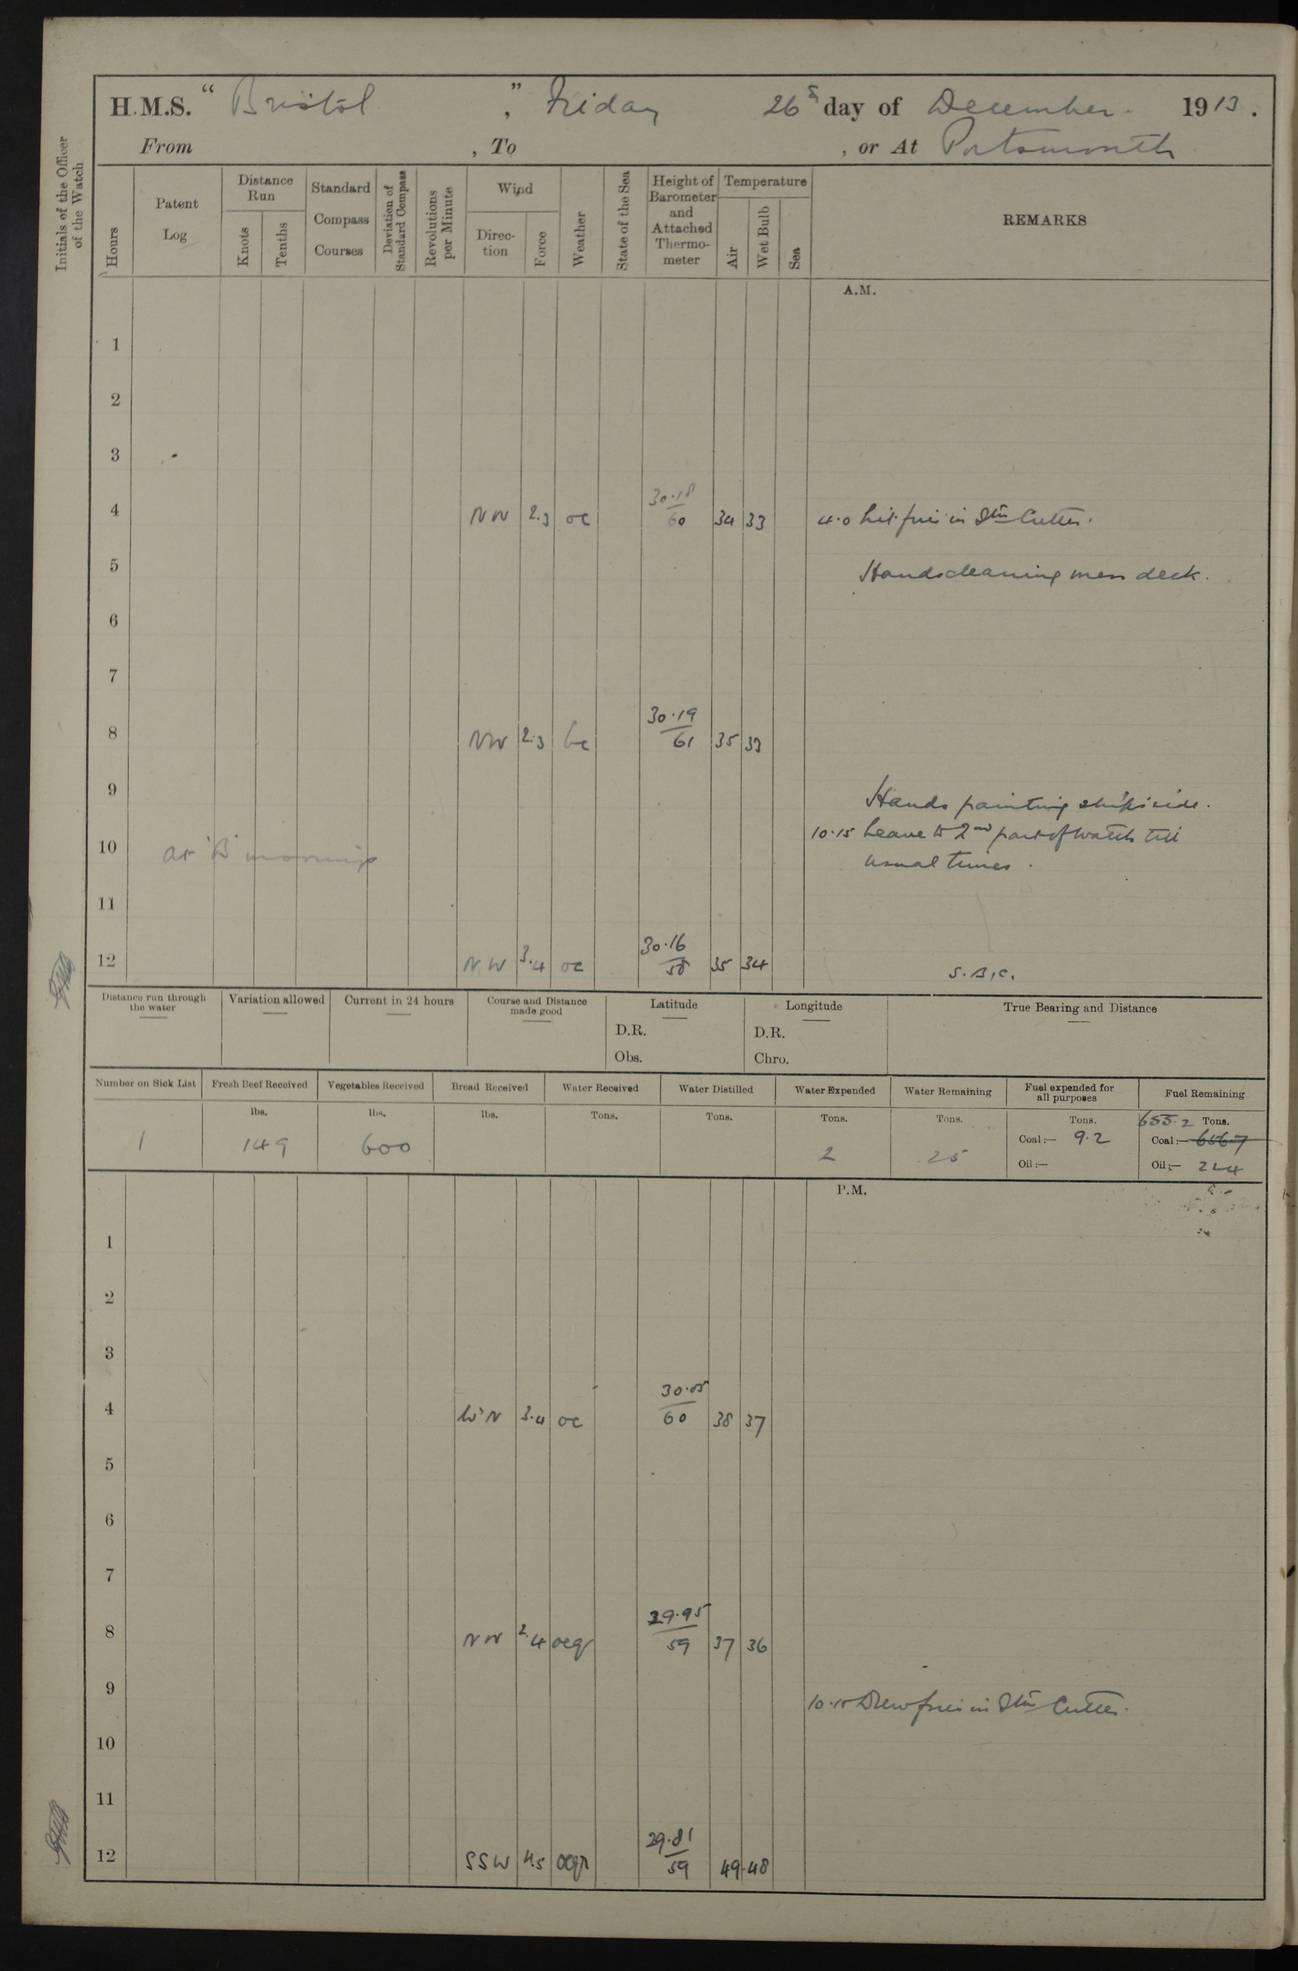 H.M.S. " Bristol ", Friday 26th day of December. 1913.
From , To , or At Portsmouth
Initials of the Officer of the Watch
Hours
Patent Log
Distance Run
Knots
Tenths
Standard Compass Courses
Deviation of Standard Compass
Revolutions per Minute
Wind
Direction
Force
Weather
State of the Sea
Height of Barometer and Attached Thermometer
Temperature
Air
Wet Bulb
Sea
REMARKS
A.M.
1
2
3
4 NW 2.3 oc 30.18/60 34 33 4.0 Lit fires in Stm Cutter.
5 Hands cleaning mess deck.
6
7
8 NW 2.3 bc 30.19/61 35 33
9 Hands painting ship's side.
10 as "B" mornings 10.15 Leave to 2nd part of watch till
usual times.
11
12 NW 3.4 oc 30.16/58 35 34 S.B.C.
Distance run through the water
Variation allowed
Current in 24 hours
Course and Distance made good
Latitude
D.R.
Obs.
Longitude
D.R.
Chro.
True Bearing and Distance
Number on Sick List
1
Fresh Beef Received
lbs.
149
Vegetables Received
lbs.
600
Bread Received
lbs.
Water Received
Tons.
Water Distilled
Tons.
Water Expended
Tons.
2
Water Remaining
Tons.
25
Fuel expended for all purposes
Tons.
Coal:— 9.2
Oil:—
Fuel Remaining
655.2 Tons.
Coal:— 656.7
Oil:— 224
P.M.
1
2
3
4 W'N 3.4 oc 30.05/60 38 37
5
6
7
8 NW 2.4 ocq 29.95/59 37 36
9 10.15 Drew fires in Stm Cutter.
10
11
12 SSW 4.5 29.81/59 49 48